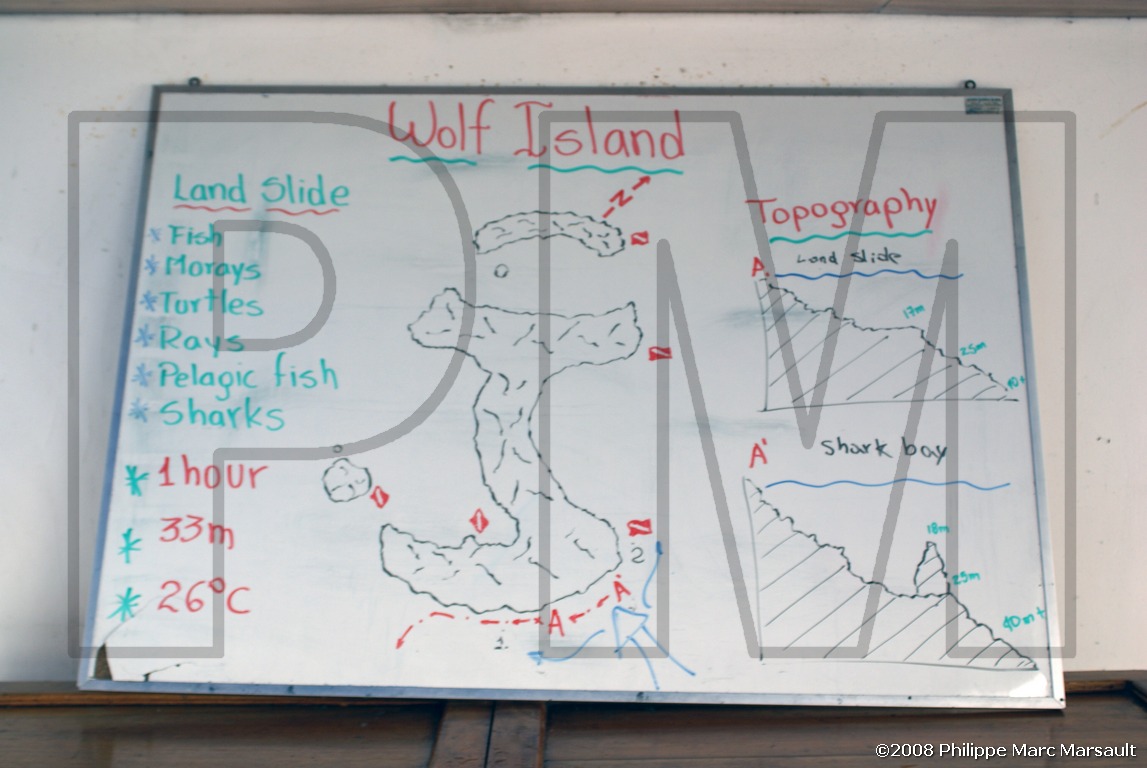 Wolf Island
Land Slide
* Fish
* Morays
* Turtles
* Rays
* Pelagic fish
* Sharks
* 1 hour
* 33m
* 26°C
N
2
A'
A
1
Topography
A
Land slide
17m
25m
40+
A'
Shark bay
18m
25m
40m+
PM
©2008 Philippe Marc Marsault